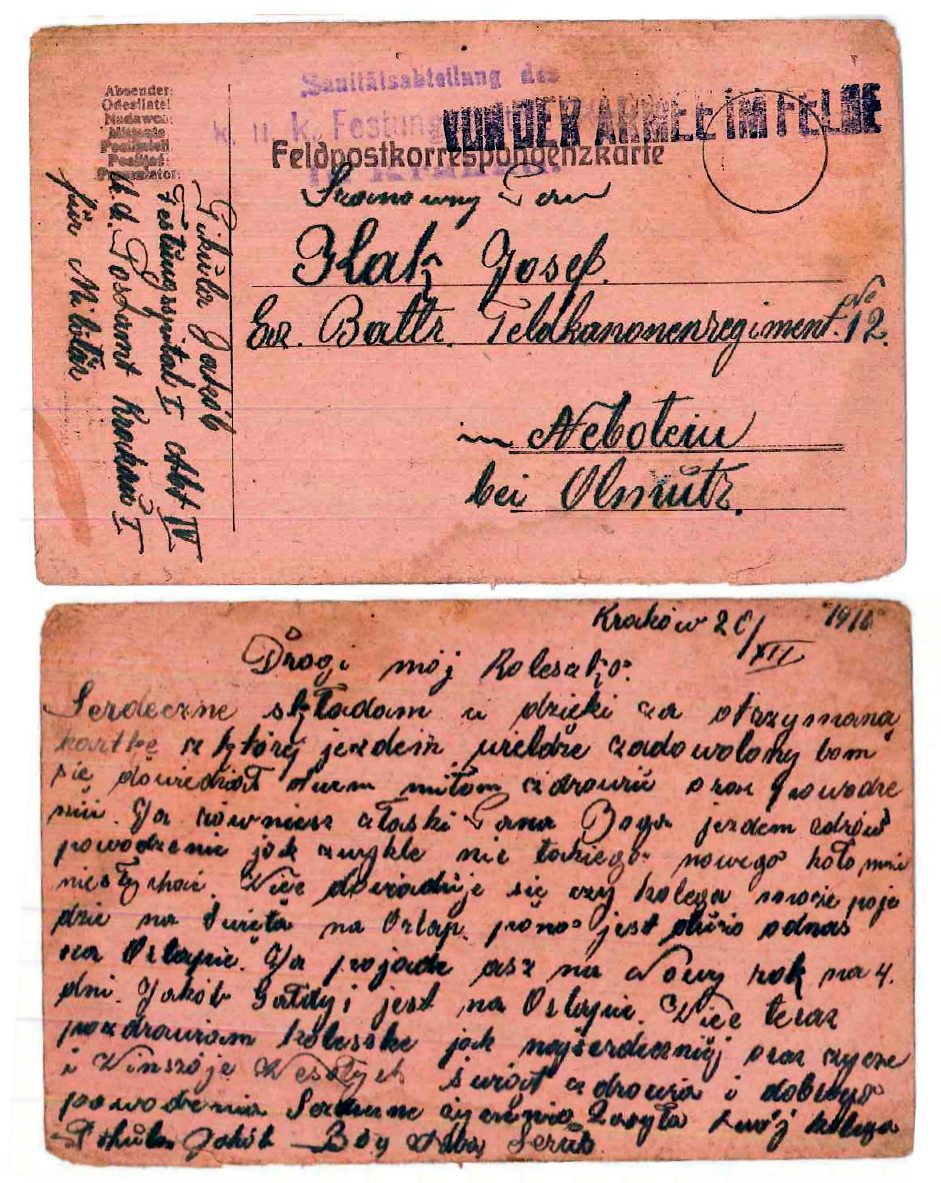 Absender:
Odesílatel
Nadawca:
Sanitätsabteilung des
k. u. k. Festungs
VON DER ARMEE IM FELDE
Feldpostkorrespondenzkarte
Szanowny Pan
Ilak Josef.
Erz. Battr. Feldkanonenregiment. No 12.
in Nebotein
bei Olmütz.
Jakób
Festungsspital I Abt IV
Postamt Krakau I
für Militär
Kraków 20/XII 1916
Drogi mój Koleszko:
Serdeczne składam ci dzięki za otrzymaną
kartkę z której jezdem wieldze zadowolony bom
się dowiedział o twem miłem zdrowiu oraz powodze
niu. Ja rowniesz złaski Pana Boga jezdem zdrów
powodzenie jak zwykle nic takiego nowego koło mnie
niesłychać. Wiec dowiaduje się czy kolega moze poje
dzie na Swięta na Orlap. pono jest dużo odnas
na Orlapie. Ja pojade asz na Nowy rok na 4.
dni. Jakób Gałdyj jest na Orlapie. Wiec teraz
pozdrawiam koleszke jak najserdeczniej oraz zycze
i Winszóje Wesołych swiąt zdrowia i dobrego
powodzenia Serdeczne zyczenia Zasyła twój kolega
Jakób Bóg